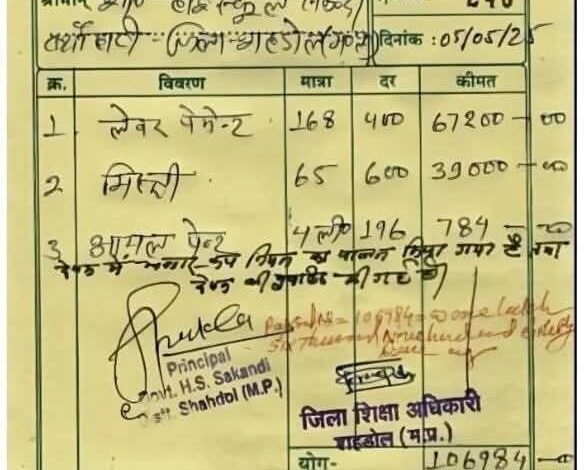 श्रीमान् हाई स्कूल
जिला-शहडोल (म.प्र.) दिनांक : 05/05/25
क्र. विवरण मात्रा दर कीमत
1 लेवर पेमेन्ट 168 400 67200-00
2 मिस्त्री 65 600 39000-00
3 आयल पेन्ट 4 ली० 196 784
का पालन किया गया है तथा
की गई है।
Shukla
Passed Rs=106984=one lakh
Six Thousand Nine hundred eighty
Principal
Govt. H.S. Sakandi
Distt. Shahdol (M.P.)
जिला शिक्षा अधिकारी
शहडोल (म.प्र.)
योग- 106984